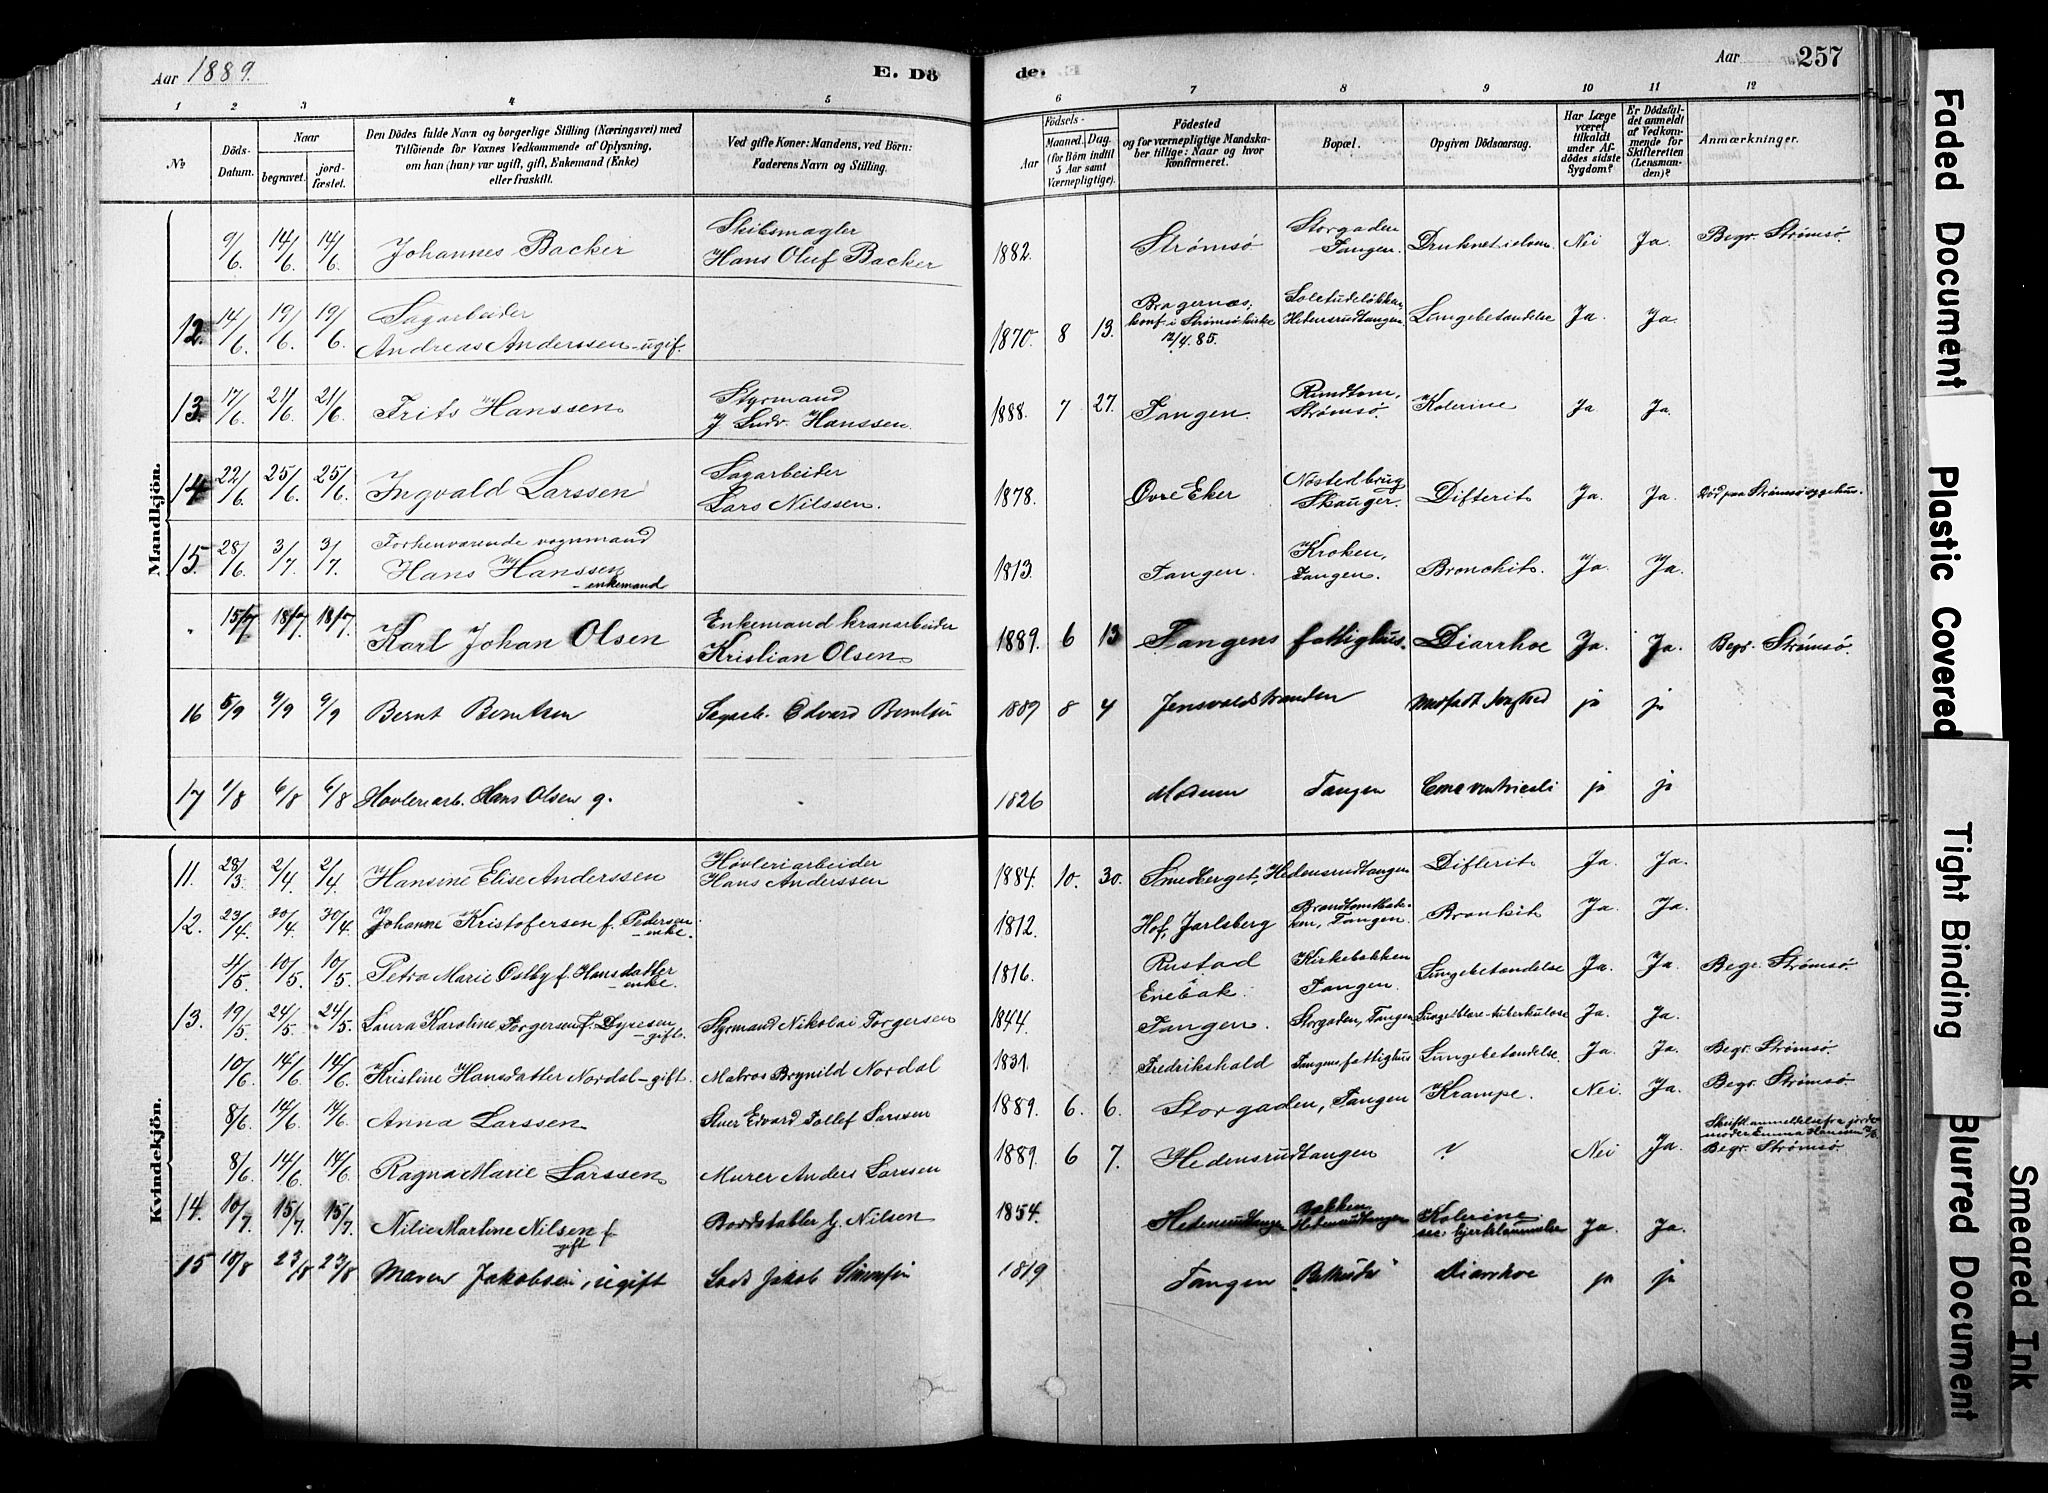 Aar 1889. E. Dö de. Aar 257
1 2 3 4 5 6 7 8 9 10 11 12
No
Döds-Datum.
Naar
begravet.
jord-fæstet.
Den Dödes fulde Navn og borgerlige Stilling (Næringsvei) med
Tilföiende for Voxnes Vedkommende af Oplysning,
om han (hun) var ugift, gift, Enkemand (Enke)
eller fraskilt.
Ved gifte Koner: Mandens, ved Börn:
Faderens Navn og Stilling.
Födsels-
Aar
Maaned. Dag.
(for Börn indtil
5 Aar samt
Værnepligtige).
Födested
og for værnepligtige Mandska-
ber tillige: Naar og hvor
konfirmeret.
Bopæl.
Opgiven Dödsaarsag.
Har Læge
været
tilkaldt
under Af-
dödes sidste
Sygdom?
Er Dödsfal-
det anmeldt
af Vedkom-
mende for
Skifteretten
(Lensman-
den)?
Anmærkninger.
Mandkjön.
9/6. 14/6. 14/6. Johannes Backer Skibsmægler Hans Oluf Backer 1882. Strømsö Storgaden Tangen. Druknet i elven Nei Ja Begr. Strømsö.
12. 14/6. 19/6. 19/6. Sagarbeider Andreas Anderssen - ugift. 1870. 8 13. Bragernæs. konf. i Strømsö kirke 12/4.85. Hedensrudtangen. Lungebetændelse Ja. Ja.
13. 17/6. 21/6 21/6. Frits Hanssen Styrmand J. Ludv. Hanssen. 1888. 7 27. Tangen. Rundtom, Strømsö. Kolerine Ja Ja.
14 22/6. 25/6. 25/6. Ingvald Larssen Sagarbeider Lars Nilssen. 1878. Övre Eker Nöstedbrug Skauger. Difterit Ja. Ja. Död paa Strømsö sygehus.
15. 28/6 3/7. 3/7. Forhenværende vognmand Hans Hanssen - enkemand 1813. Tangen. Kroken, Tangen. Bronchit. Ja. Ja.
" 15/7 18/7. 18/7. Karl Johan Olsen Enkemand kranarbeider Kristian Olsen 1889. 6 13 Tangens fattighus. Diarrhoe Ja. Ja. Begr. Strømsö.
16 5/9 9/9 9/9 Bernt Berntsen Sagarb. Edvard Berntsen 1889 8 4 Jensvoldstranden Medfödt ja ja
17 1/8 6/8 6/8 Hövleriarb. Hans Olsen g. 1826 Modum Tangen ja ja
Kvindekjön.
11. 28/3. 2/4. 2/4. Hansine Elise Anderssen Hövleriarbeider Hans Anderssen 1884. 10. 30. Smedberget, Hedensrudtangen Difterit Ja. Ja.
12. 23/4. 30/4. 30/4. Johanne Kristofersen f. Pedersen - enke. 1812. Hof, Jarlsberg Tangen. Bronkit Ja. Ja.
4/5. 10/5. 10/5. Petra Marie Østby f. Hansdatter - enke. 1816. Rustad Enebak. Kirkebakken Tangen. Lungebetændelse Ja. Ja. Begr. Strømsö.
13. 19/5. 24/5. 24/5. Laura Karoline Torgersen f. Dyresen - gift. Styrmand Nikolai Torgersen 1844. Tangen. Storgaden, Tangen Lungeblære-tuberkulose Ja. Ja.
10/6. 14/6. 14/6. Kristine Hansdatter Nordal - gift. Matros Brynild Nordal 1831. Fredrikshald Tangens fattighus Lungebetændelse. Ja. Ja. Begr. Strømsö.
8/6. 14/6. 14/6. Anna Larssen Stuer Edvard Tollef Larssen 1889. 6. 6. Storgaden, Tangen Krampe. Nei. Ja. Begr. Strømsö
8/6. 14/6. 14/6. Ragna Marie Larssen Murer Anders Larssen 1889. 6 7. Hedensrudtangen ? Nei Ja. Skriftl. anmeldelse fra jordemoder Emma Hansen Begr. Strømsö.
14. 10/7. 15/7. 15/7. Nilie Martine Nilsen f gift Bordstabler G. Nilsen 1854. Hedensrudtangen Bakken Hedensrudtangen Kolerine Ja. Ja.
15 18/8 23/8 23/8 Maren Jakobsen, ugift Jakob Simensen 1819 Tangen Diarrhoe ja ja
Faded Document
Plastic Covered
Tight Binding
Blurred Document
Smeared Ink